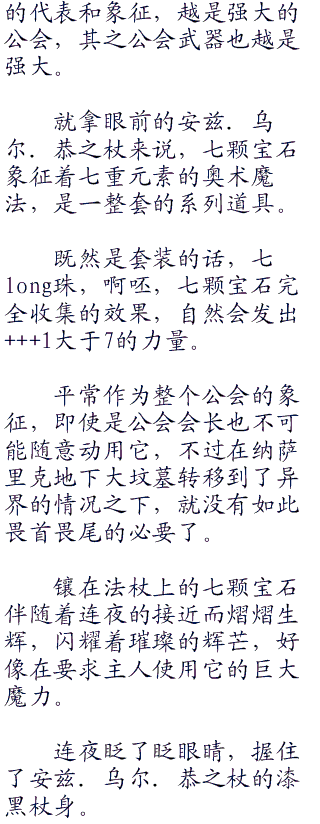 的代表和象征，越是强大的
公会，其之公会武器也越是
强大。
就拿眼前的安兹．乌
尔．恭之杖来说，七颗宝石
象征着七重元素的奥术魔
法，是一整套的系列道具。
既然是套装的话，七
long珠，啊呸，七颗宝石完
全收集的效果，自然会发出
+++1大于7的力量。
平常作为整个公会的象
征，即使是公会会长也不可
能随意动用它，不过在纳萨
里克地下大坟墓转移到了异
界的情况之下，就没有如此
畏首畏尾的必要了。
镶在法杖上的七颗宝石
伴随着连夜的接近而熠熠生
辉，闪耀着璀璨的辉芒，好
像在要求主人使用它的巨大
魔力。
连夜眨了眨眼睛，握住
了安兹．乌尔．恭之杖的漆
黑杖身。